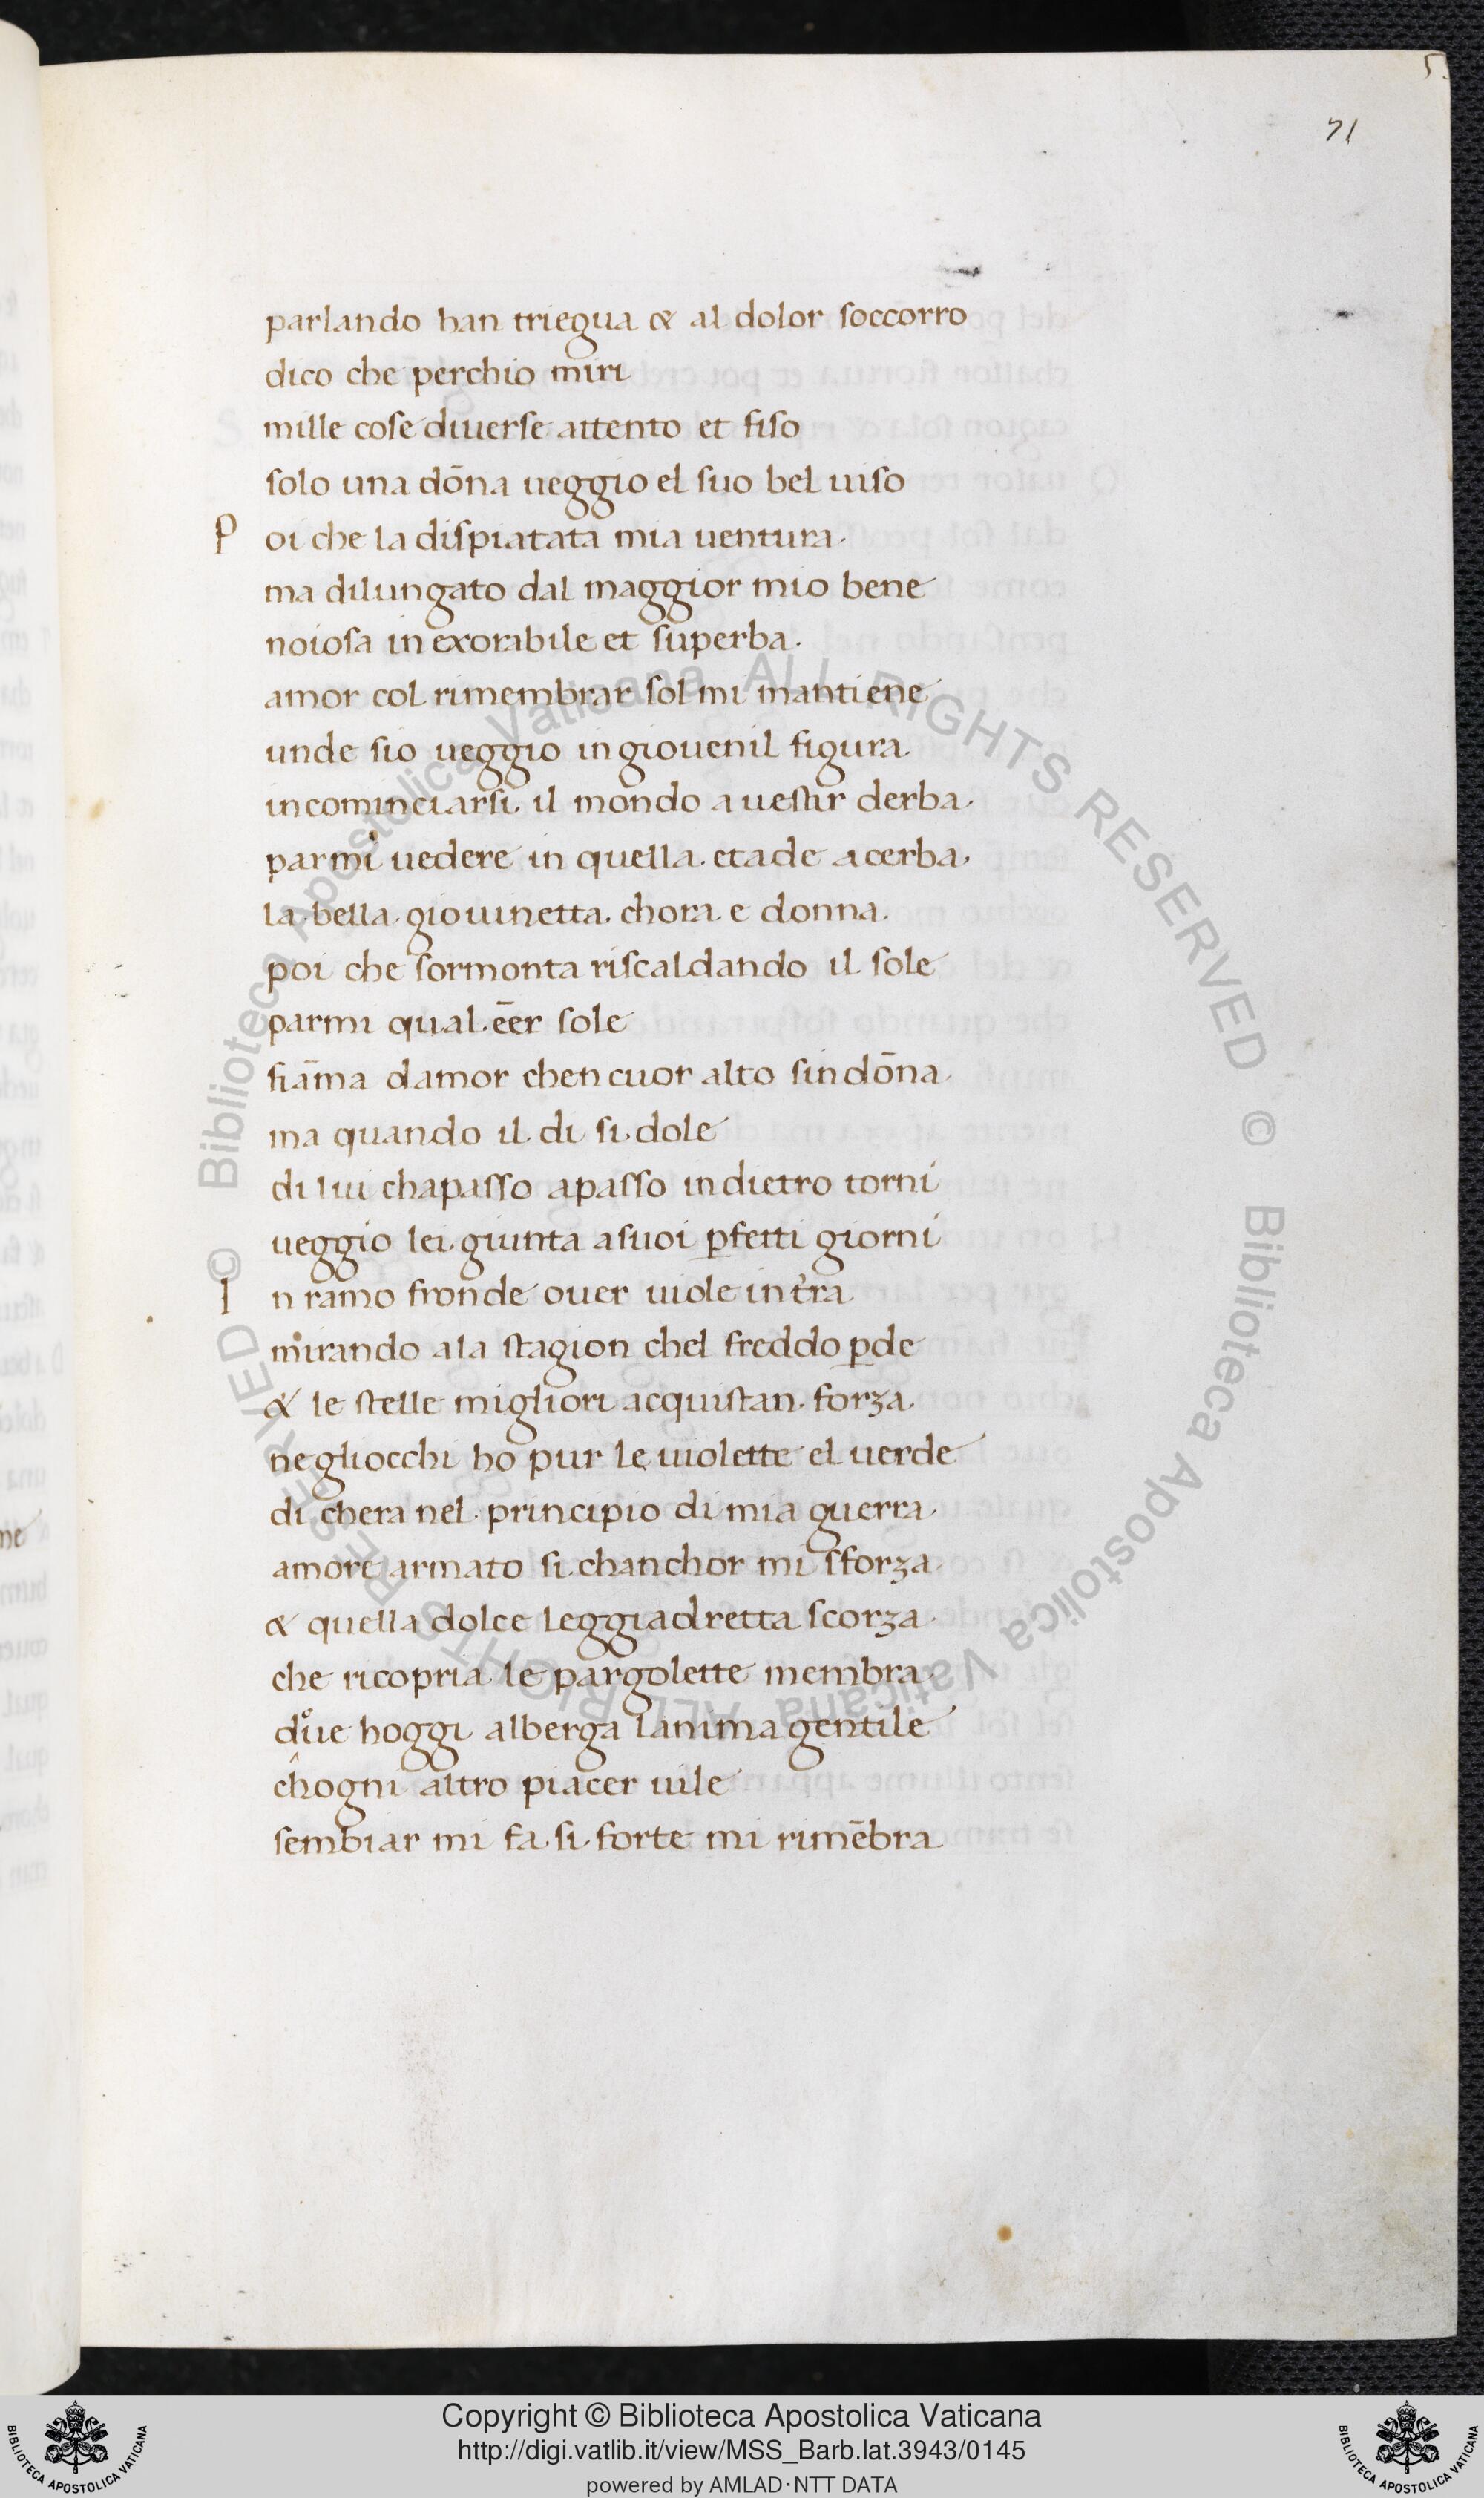 5.
71
parlando han triegua & al dolor soccorro
dico che perchio miri
mille cose diuerse attento et fiso
solo una dōna ueggio el suo bel uiso
P oi che la dispiatata mia uentura.
ma dilungato dal maggior mio bene
noiosa in exorabile et superba.
amor col rimembrar sol mi mantiene
unde sio ueggio in giouenil figura.
incominciarsi. il mondo a uestir derba.
parmi uedere in quella. etade acerba.
la. bella. giouinetta. chora. e donna.
poi che sormonta riscaldando il sole
parmi qual. ēer sole
fiāma damor chen cuor alto sindōna.
ma quando il. di si. dole
di lui chapasso apasso indietro torni
ueggio lei. giunta asuoi ꝑfetti giorni
I n ramo fronde ouer uiole in t̉ra.
mirando ala stagion chel freddo ꝑde
& le stelle migliori acquistan. forza.
negliocchi ho pur le uiolette el uerde
di chera nel. principio di mia guerra.
amore armato si. chanchor mi sforza.
& quella dolce leggiadretta scorza.
che ricopria le pargolette membra.
duͦe hoggi alberga lanima gentile
chogni altro piacer uile
sembiar mi fa. si. forte mi rimēbra.
© Biblioteca Apostolica Vaticana ALL RIGHTS RESERVED © Biblioteca Apostolica Vaticana ALL RIGHTS RESERVED
Copyright © Biblioteca Apostolica Vaticana
http://digi.vatlib.it/view/MSS_Barb.lat.3943/0145
powered by AMLAD·NTT DATA
BIBLIOTECA APOSTOLICA VATICANA
BIBLIOTECA APOSTOLICA VATICANA